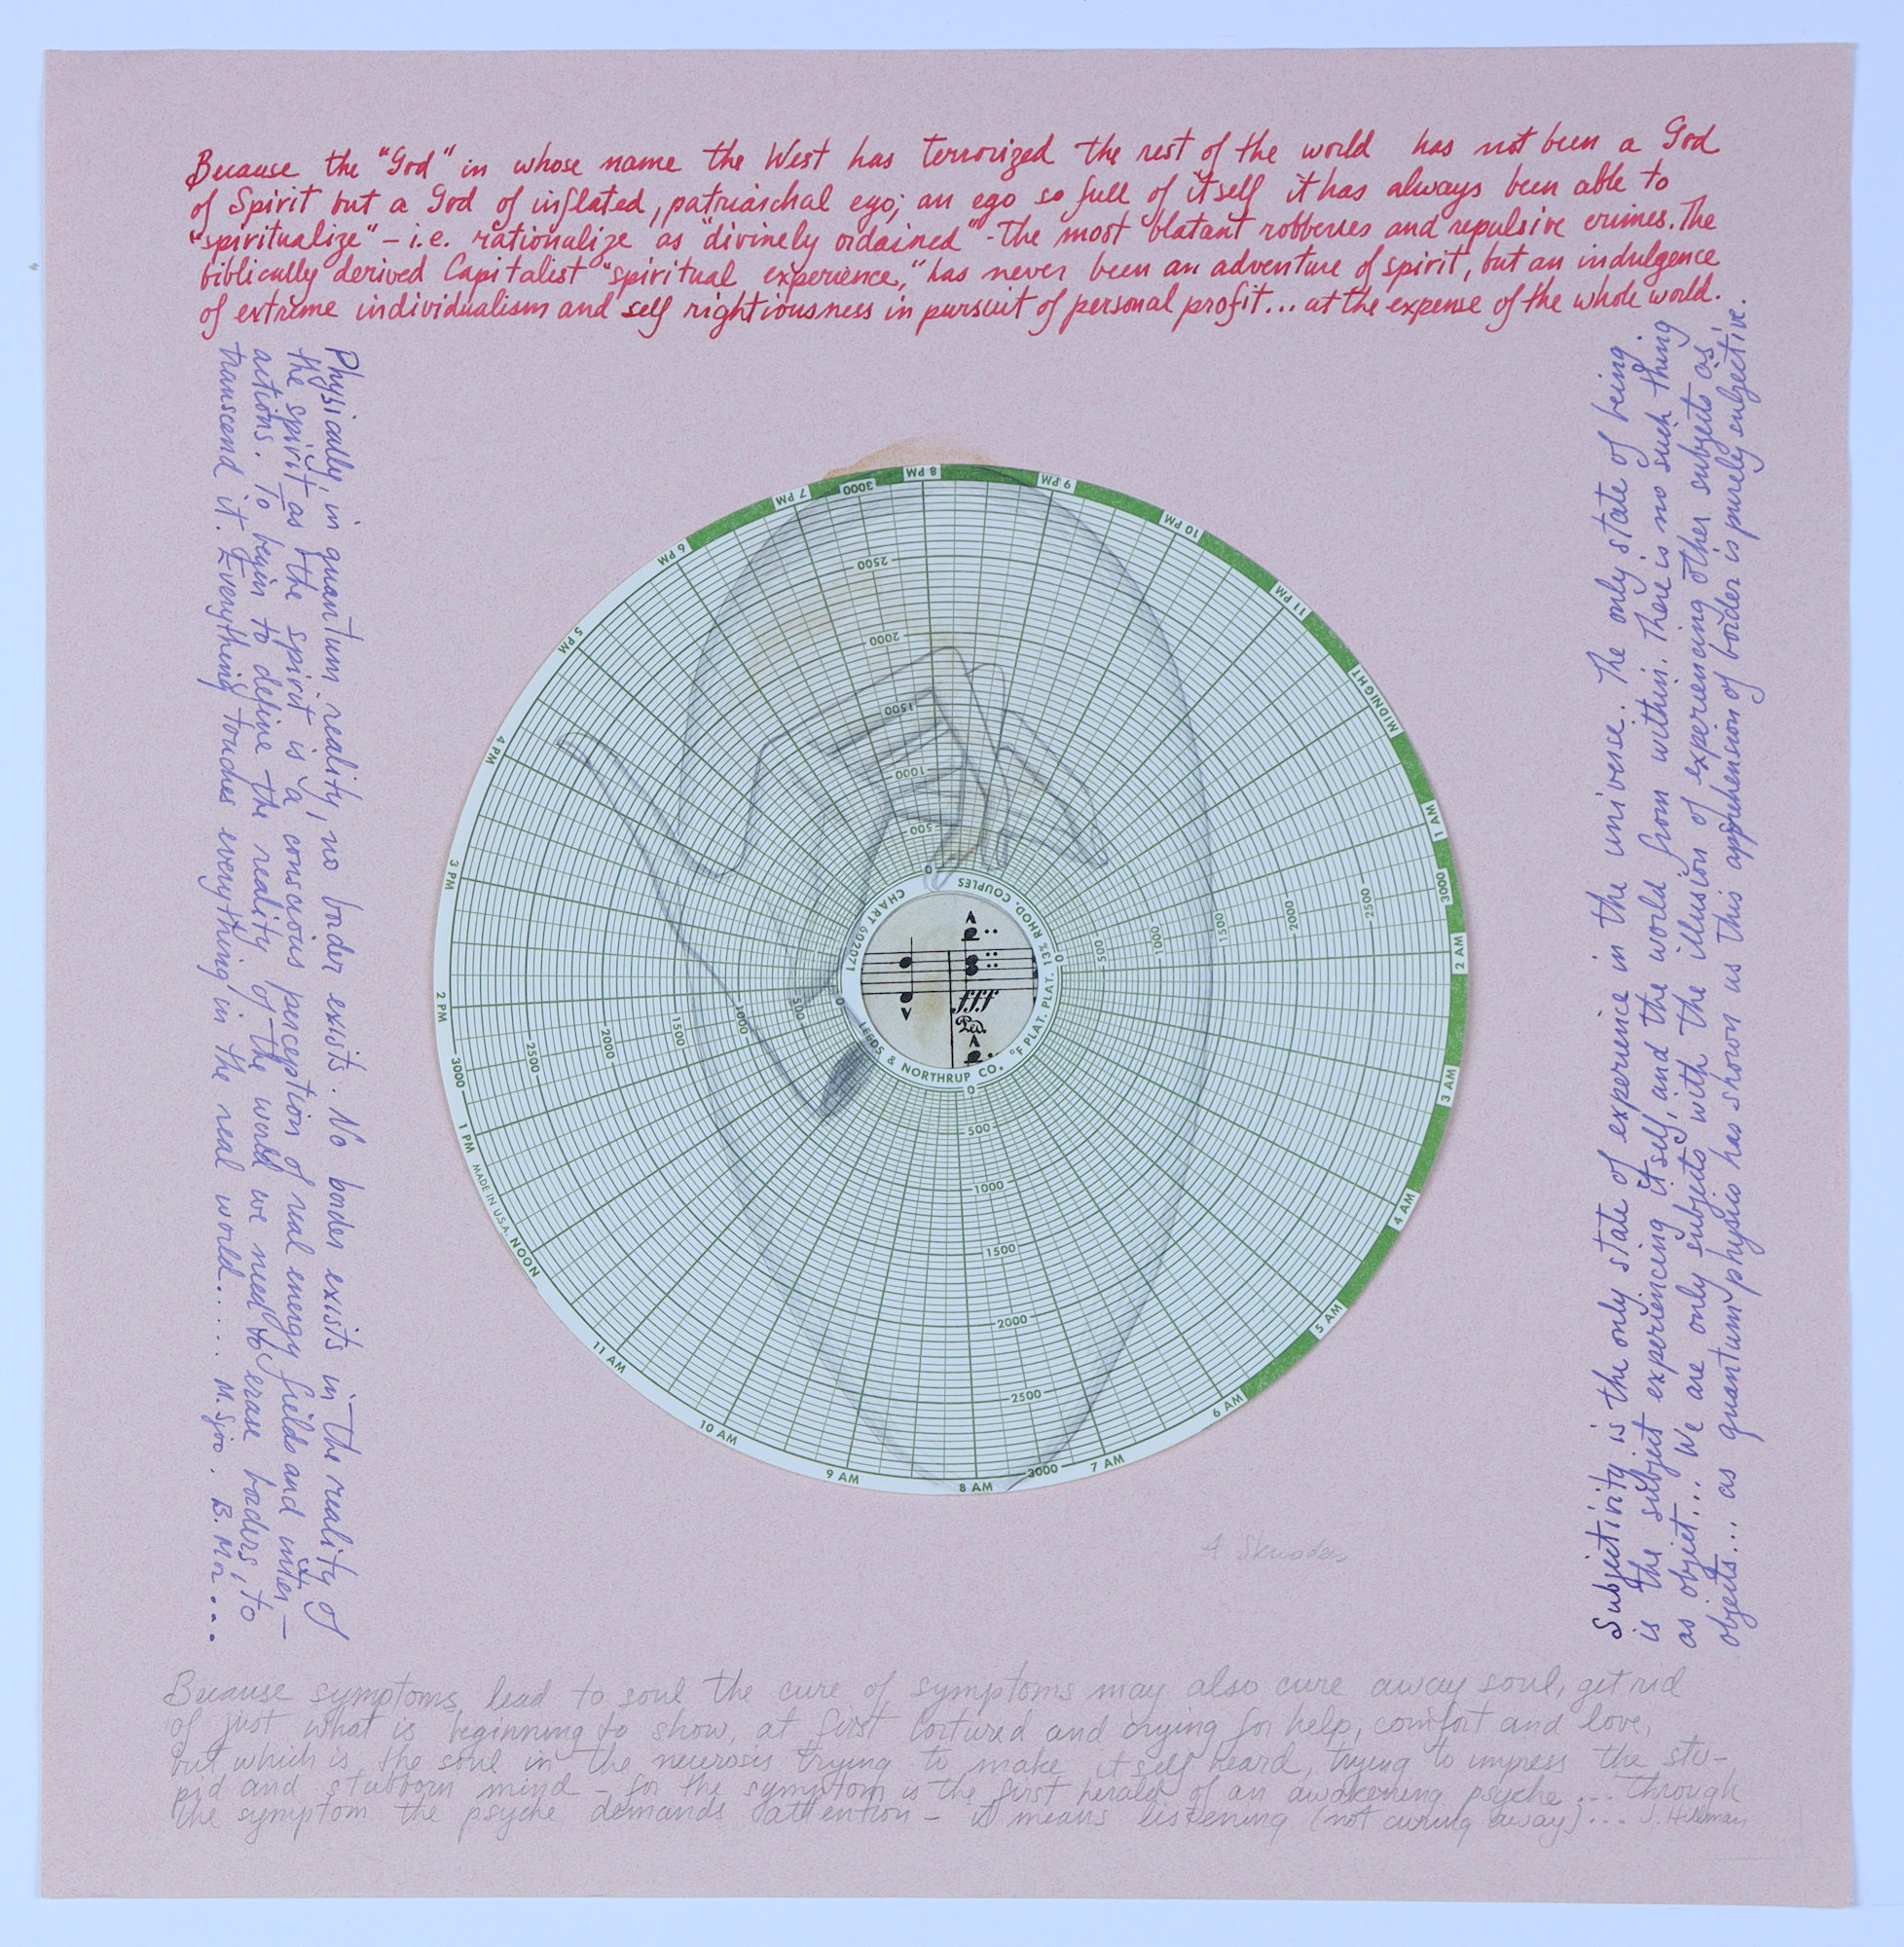 Because the "God" in whose name the West has terrorized the rest of the world has not been a God
of Spirit but a God of inflated, patriarchal ego; an ego so full of itself it has always been able to
"spiritualize" – i.e. rationalize as "divinely ordained" - the most blatant robberies and repulsive crimes. The
biblically derived Capitalist "spiritual experience," has never been an adventure of spirit, but an indulgence
of extreme individualism and self rightiousness in pursuit of personal profit... at the expense of the whole world.
Physically, in quantum reality, no border exists. No border exists in the reality of
the spirit – as the spirit is a conscious perception of real energy fields and inter–
actions. To begin to define the reality of the world we need to erase borders, to
transcend it. Everything touches everything in the real world..... M. Sjoo. B. Mor...
Subjectivity is the only state of experience in the universe. The only state of being.
is the subject experiencing itself, and the world from within. There is no such thing
as object... We are only subjects with the illusion of experiencing other subjects as
objects... as quantum physics has shown us this apprehension of border is purely subjective.
8 PM
9 PM
10 PM
11 PM
MIDNIGHT
1 AM
2 AM
3 AM
4 AM
5 AM
6 AM
7 AM
8 AM
9 AM
10 AM
11 AM
NOON
MADE IN U.S.A.
1 PM
2 PM
3 PM
4 PM
5 PM
6 PM
7 PM
3000
2500
2000
1500
1000
500
0
0
500
1000
1500
2000
2500
3000
0
500
1000
1500
2000
2500
3000
0
500
1000
1500
2000
2500
3000
CHART 602071
LEEDS & NORTHRUP CO.
°F PLAT. PLAT. 13% RHOD. COUPLES
fff
Ped.
Because symptoms lead to soul the cure of symptoms may also cure away soul, get rid
of just what is beginning to show, at first tortured and crying for help, comfort and love,
but which is the soul in the neurosis trying to make itself heard, trying to impress the stu–
pid and stubborn mind – for the symptom is the first herald of an awakening psyche... through
the symptom the psyche demands attention – it means listening (not curing away)... J. Hillman